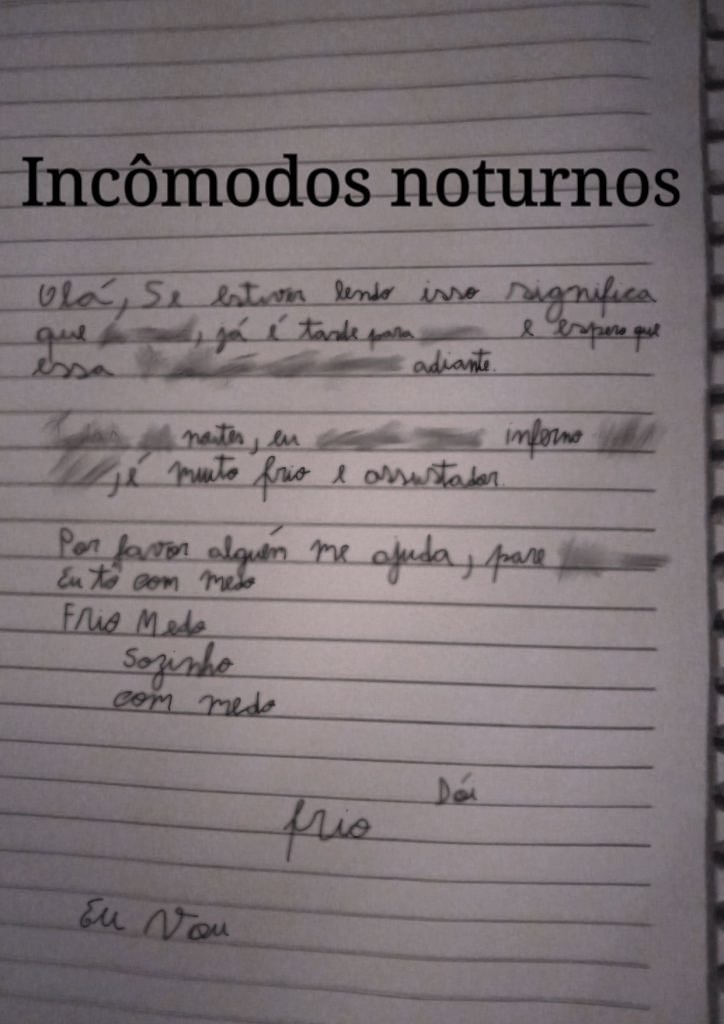 Incômodos noturnos
Olá, Se estiver lendo isso significa
que , já é tarde para e espero que
essa adiante.
noites, eu inferno
, é muito frio e assustador.
Por favor alguém me ajuda, pare
Eu tô com medo
Frio Medo
Sozinho
com medo
Dói
frio
Eu Vou